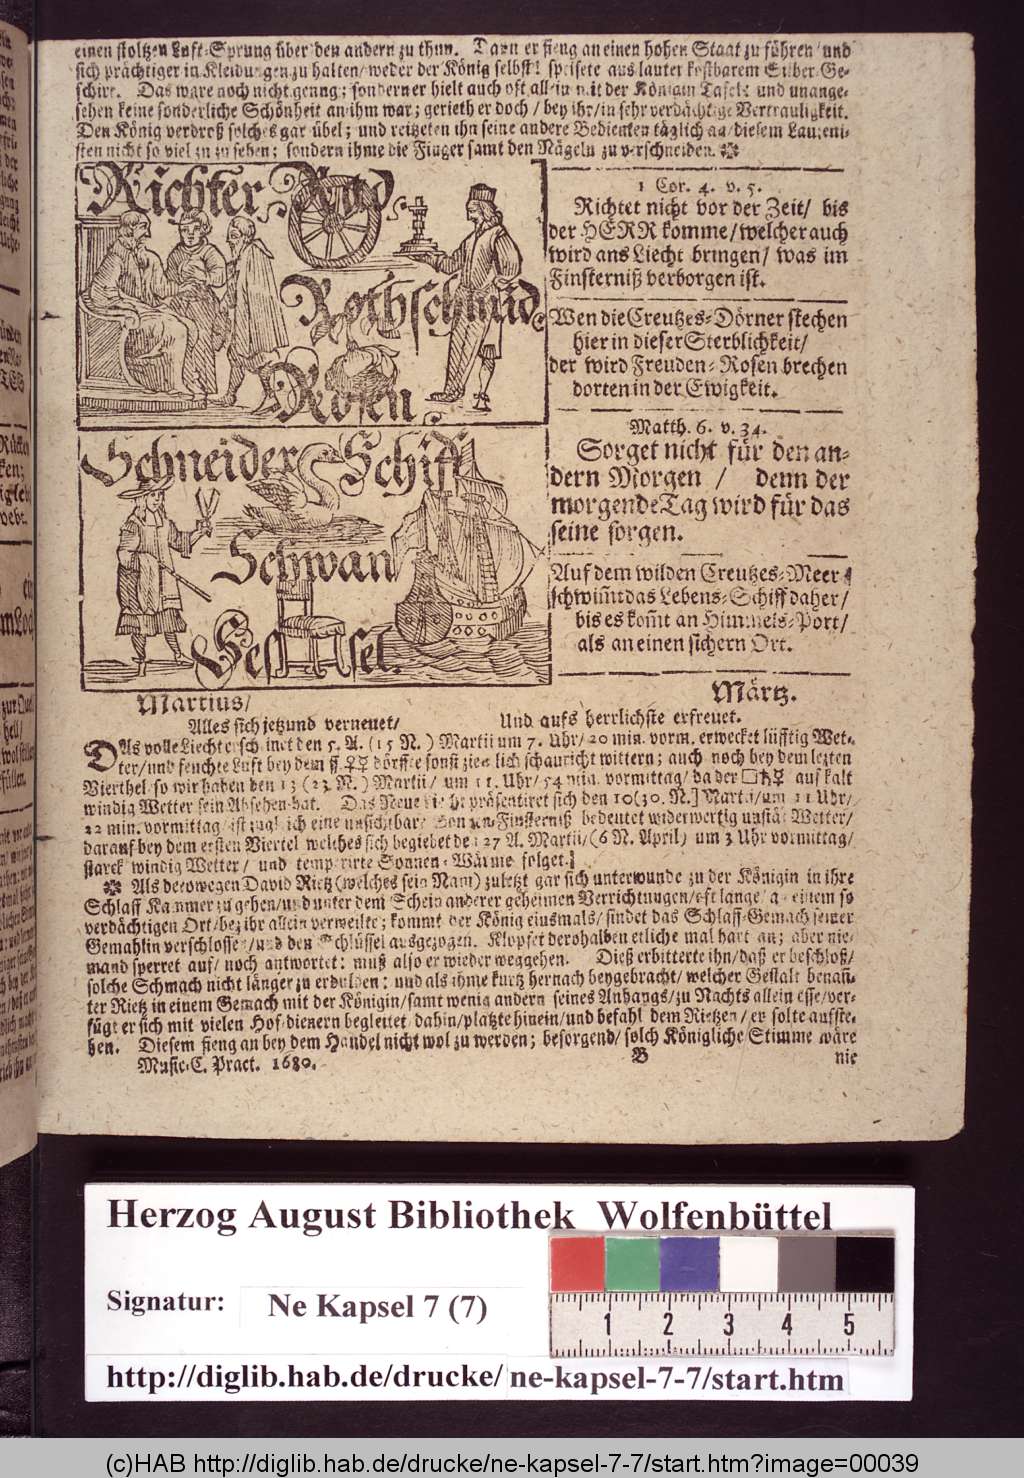 einen stoltzen Luft-Sprung über den andern zu thun. Dann er fieng an einen hohen Staat zu führen / und
sich prächtiger in Kleidungen zu halten / weder der König selbst! speisete aus lauter kostbarem Silber-Ge-
schirr. Das ware noch nicht genug; sondern er hielt auch oft allein mit der Königin Tafel: und unange-
sehen keine sonderliche Schönheit an ihm war; gerieth er doch / bey ihr / in sehr verdächtige Vertrauligkeit.
Den König verdroß solches gar übel; und reitzeten ihn seine andere Bedienten täglich an / diesem Lauteni-
sten nicht so viel zu zu sehen; sondern ihme die Finger samt den Nägeln zu verschneiden.
Richter Rad
Rothschmid
Rosen
1 Cor. 4. v. 5.
Richtet nicht vor der Zeit / bis
der HERR komme / welcher auch
wird ans Liecht bringen / was im
Finsterniß verborgen ist.
Wen die Creutzes-Dörner stechen
hier in dieser Sterblichkeit /
der wird Freuden-Rosen brechen
dorten in der Ewigkeit.
Schneider Schiff
Schwan
Sessel.
Matth. 6. v. 34.
Sorget nicht für den an-
dern Morgen / denn der
morgende Tag wird für das
seine sorgen.
Auf dem wilden Creutzes-Meer
schwim̃t das Lebens-Schiff daher /
bis es kom̃t an Himmels-Port /
als an einen sichern Ort.
Martius /
Märtz.
Alles sich jetzund verneuet /
Und aufs herrlichste erfreuet.
DAs volle Liecht erscheinet den 5. A. (15 N.) Martii um 7. Uhr / 20 min. vorm. erwecket lüfftig Wet-
ter / und feuchte Luft bey dem ☿♀ dörffte sonst ziemlich schauricht wittern; auch noch bey dem letzten
Vierthel / so wir haben den 13 (23. N.) Martii / um 11. Uhr / 54 min. vormittag / da der □♄☿ auf kalt
windig Wetter sein Absehen hat. Das Neue Liecht präsentiret sich den 10 (30. N.] Martii / um 11 Uhr /
22 min. vormittag / ist zugleich eine unsichtbar Sonnen-Finsterniß bedeutet widerwertig unstät Wetter /
darauf bey dem ersten Viertel welches sich begiebet de 27 A. Martii / (6 N. April) um 3 Uhr vormittag /
starck windig Wetter / und temperirte Sonnen-Wärme folget.
Als derowegen David Rietz (welches sein Nam) zuletzt gar sich unterwunde zu der Königin in ihre
Schlaff Kammer zu gehen / und unter dem Schein anderer geheimen Verrichtungen / oft lange an einem so
verdächtigen Ort / bey ihr allein verweilte; kommt der König einsmals / findet das Schlaff-Gemach seiner
Gemahlin verschlossen / und den Schlüssel ausgezogen. Klopfet derohalben etliche mal hart an; aber nie-
mand sperret auf / noch antwortet: muß also er wieder weggehen. Dieß erbitterte ihn / daß er beschloß /
solche Schmach nicht länger zu erdulden: und als ihme kurtz hernach beygebracht / welcher Gestalt benañ-
ter Rietz in einem Gemach mit der Königin / samt wenig andern seines Anhangs / zu Nachts allein esse / ver-
fügt er sich mit vielen Hof-dienern begleitet dahin / platzte hinein / und befahl dem Rietzen / er solte aufste-
hen. Diesem fieng an bey dem Handel nicht wol zu werden; besorgend / solch Königliche Stimme wäre
Music-C. Pract. 1680.
B
nie
Herzog August Bibliothek Wolfenbüttel
Signatur: Ne Kapsel 7 (7)
1 2 3 4 5
http://diglib.hab.de/drucke/ne-kapsel-7-7/start.htm
(c)HAB http://diglib.hab.de/drucke/ne-kapsel-7-7/start.htm?image=00039